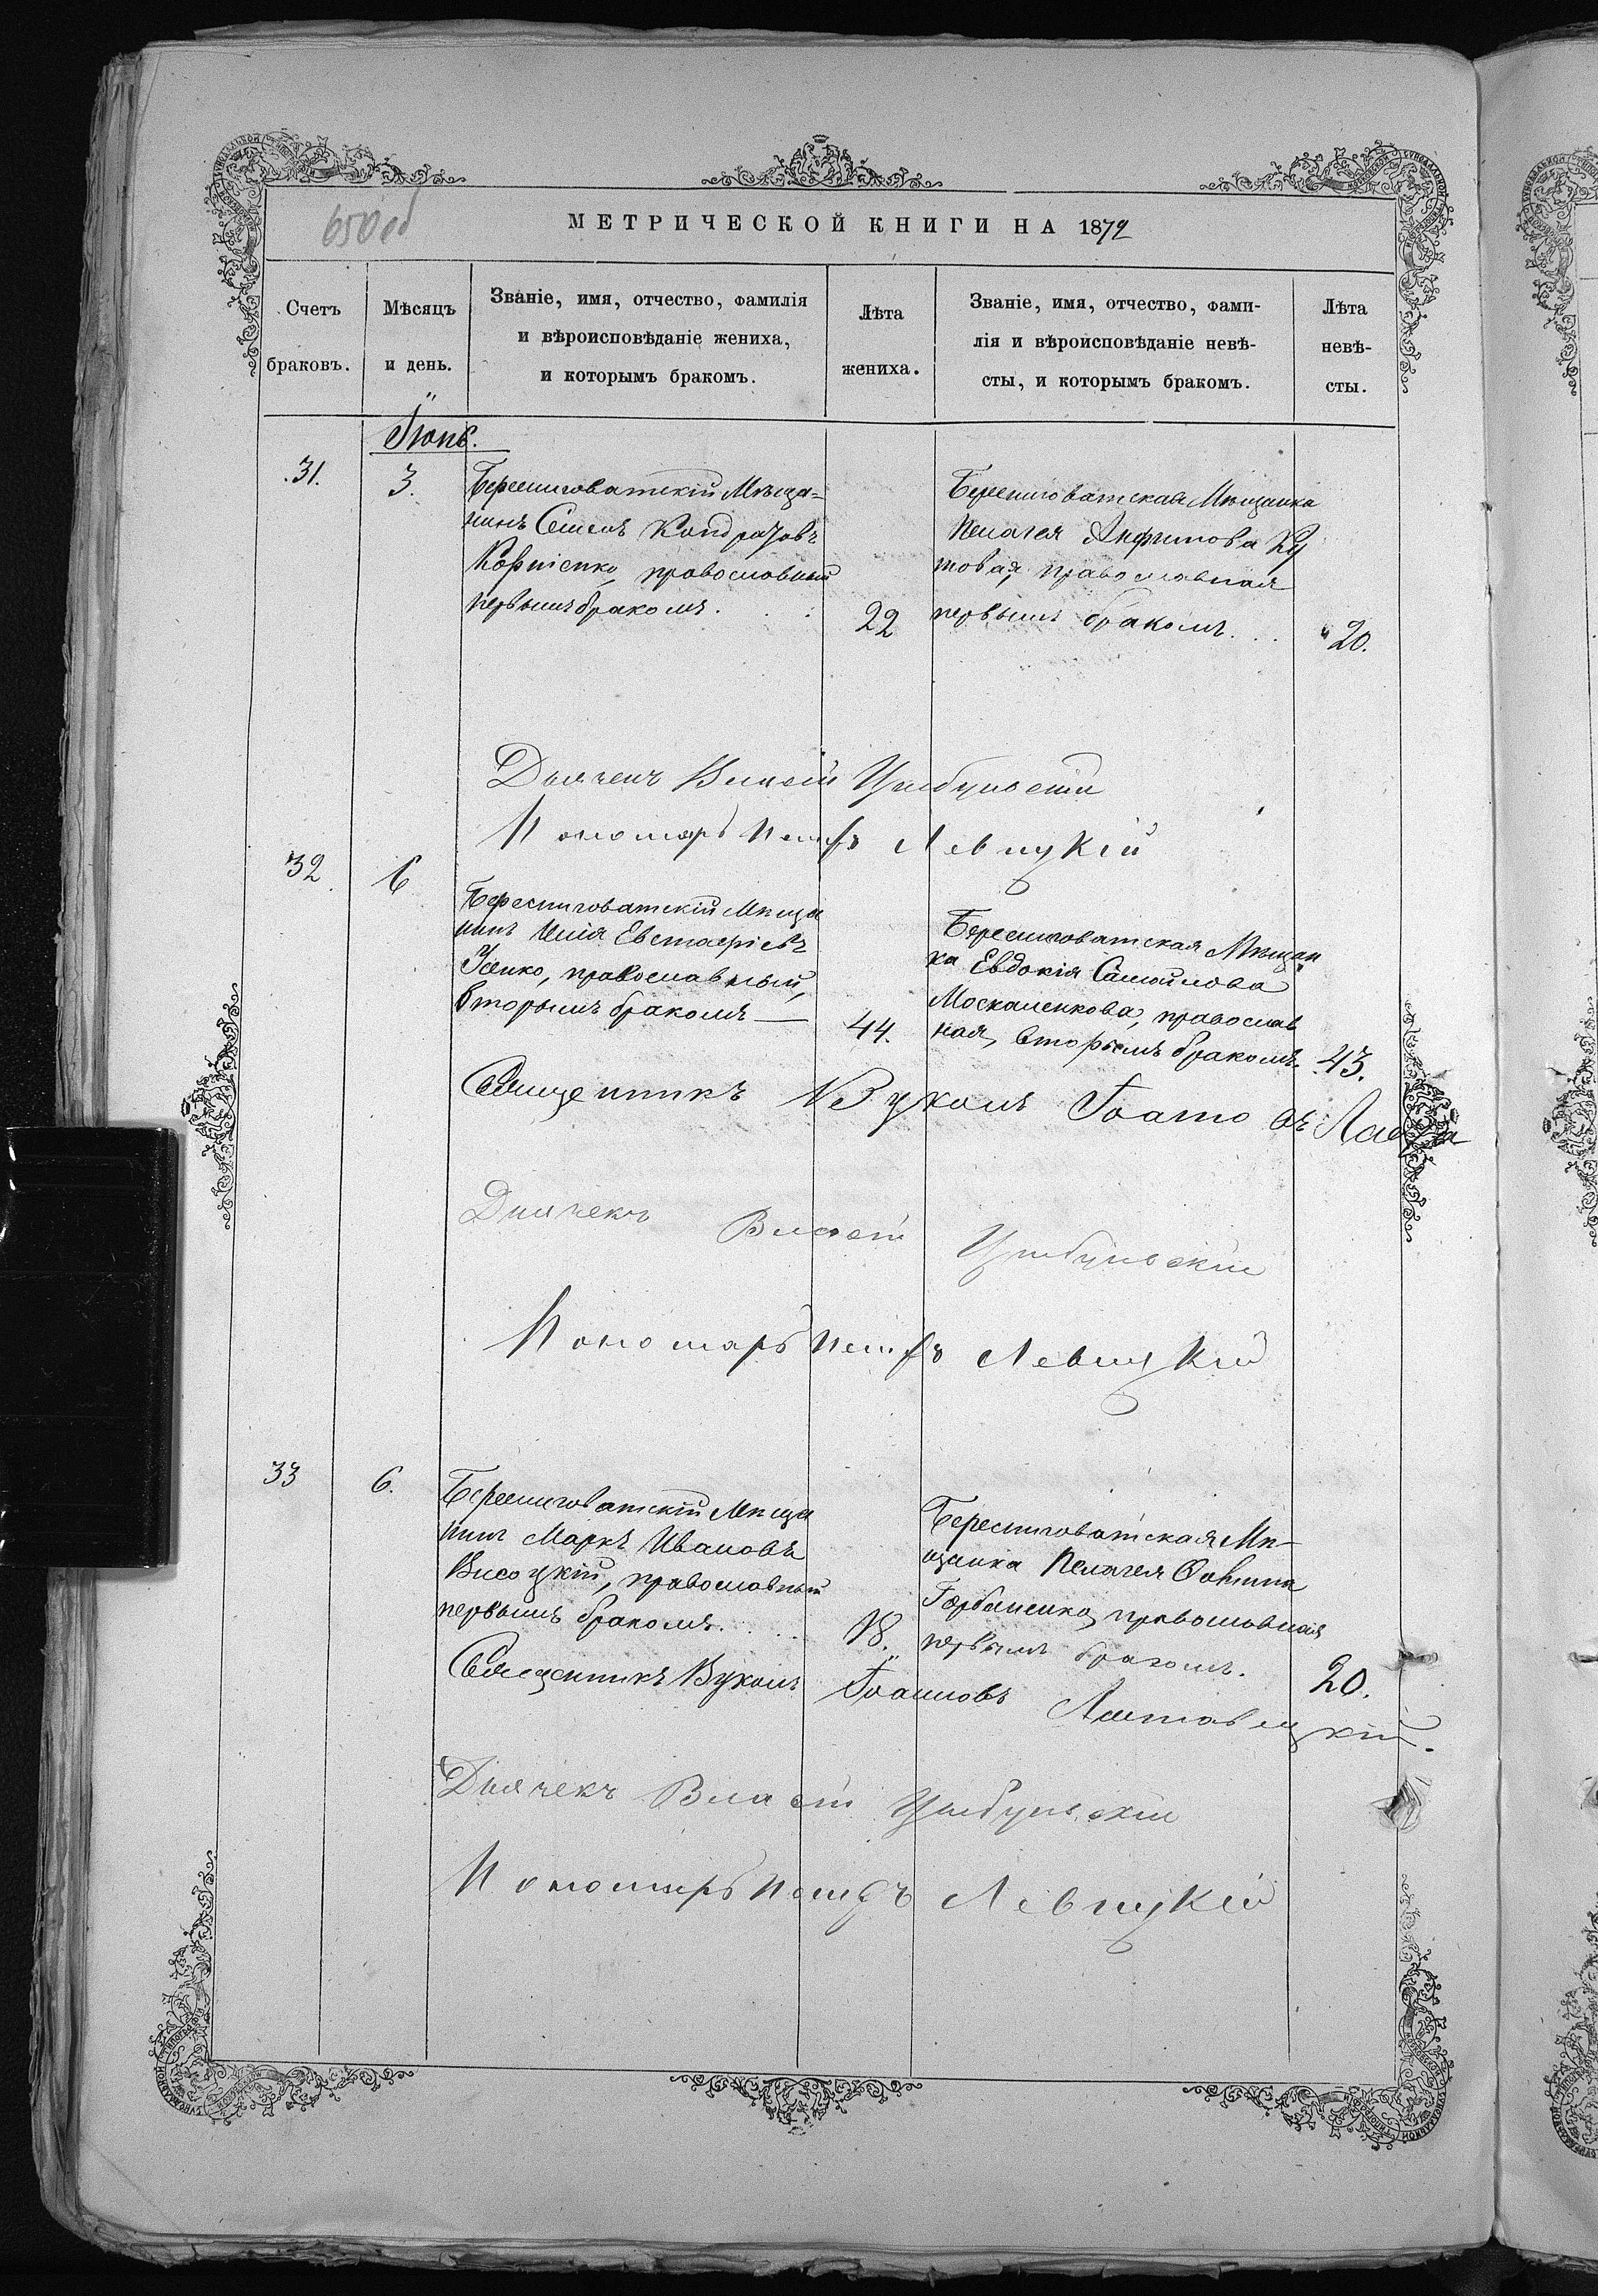 650 об
МЕТРИЧЕСКОЙ КНИГИ НА 1872
Счетъ браковъ.
Мѣсяцъ и день.
Званіе, имя, отчество, фамилія
и вѣроисповѣданіе жениха,
и которымъ бракомъ.
Лѣта жениха.
Званіе, имя, отчество, фами-
лія и вѣроисповѣданіе невѣ-
сты, и которымъ бракомъ.
Лѣта невѣ-
сты.
Іюнь.
31.
3.
Берестоватскій Мѣща=
нинъ Семенъ Кондратовъ
Корніенко, православный
первымъ бракомъ.
22
Берестоватская Мѣщанка
Пелагея Анфимова Ку
товая, православная
первымъ бракомъ.
20.
Дьячекъ Власій Цыбульскій
Пономарь Петръ Левицкій
32
6
Берестоватскій Мѣща
нинъ Илія Евстафіевъ
Усенко, православный,
вторымъ бракомъ
44.
Берестоватская Мѣщан
ка Евдокія Самойлова
Москаленкова, православ
ная, вторымъ бракомъ.
43.
Священникъ Вуколъ
Дьячекъ Власій Цыбульскій
Пономарь Петръ Левицкій
33
6.
Берестоватскій Мѣща
нинъ Маркъ Ивановъ
Висоцкій, православный
первымъ бракомъ.
18.
Берестоватская Мѣ-
щанка Пелагея
Горбаненко, православная
первымъ бракомъ.
20.
Священникъ Вуколъ Іоанновъ
Дьячекъ Власій Цыбульскій
Пономарь Петръ Левицкій